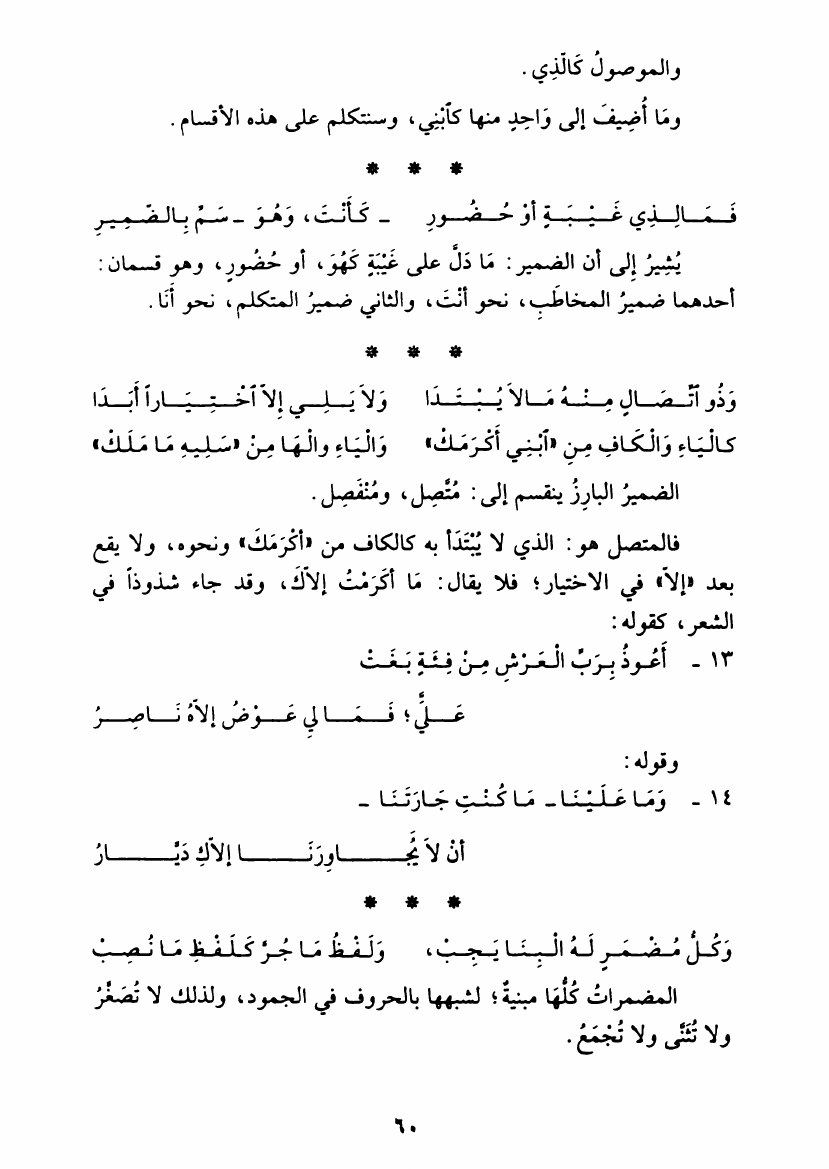 والموصولُ كَالَّذِي.
ومَا أُضِيفَ إلى وَاحِدٍ منها كَٱبْنِي، وسنتكلم على هذه الأقسام.
* * *
فَمَالِذِي غَيْبَةٍ أوْ حُضُورِ - كَأَنْتَ، وَهْوَ - سَمِّ بِالضَّمِيرِ
يُشِيرُ إلى أن الضمير: مَا دَلَّ على غَيْبَةٍ كَهُوَ، أو حُضُورٍ، وهو قسمان:
أحدهما ضميرُ المخاطَبِ، نحو أنْتَ، والثاني ضميرُ المتكلم، نحو أَنَا.
* * *
وَذُو ٱتِّصَالٍ مِنْهُ مَالاَ يُبْتَدَا وَلاَ يَلِي إلاَّ ٱخْتِيَاراً أَبَدَا
كالْيَاءِ وَالْكَافِ مِنِ «ٱبْنِي أَكْرَمَكْ» وَالْيَاءِ والْهَا مِنْ «سَلِيهِ مَا مَلَكْ»
الضميرُ البارِزُ ينقسم إلى: مُتَّصِل، ومُنْفَصِل.
فالمتصل هو: الذي لا يُبْتَدَأ به كالكاف من «أكْرَمَكَ» ونحوه، ولا يقع
بعد «إلاَّ» في الاختيار؛ فلا يقال: مَا أكْرَمْتُ إلاَّكَ، وقد جاء شذوذاً في
الشعر، كقوله:
١٣ - أَعُوذُ بِرَبِّ الْعَرْشِ مِنْ فِئَةٍ بَغَتْ
عَلَيَّ؛ فَمَا لِي عَوْضُ إلاَّهُ نَاصِرُ
وقوله:
١٤ - وَمَا عَلَيْنَا - مَا كُنْتِ جَارَتَنَا -
أنْ لاَ يُجَاوِرَنَا إلاَّكِ دَيَّارُ
* * *
وَكُلُّ مُضْمَرٍ لَهُ الْبِنَا يَجِبْ، وَلَفْظُ مَا جُرَّ كَلَفْظِ مَا نُصِبْ
المضمراتُ كُلُّهَا مبنيةٌ؛ لشبهها بالحروف في الجمود، ولذلك لا تُصَغَّرُ
ولا تُثَنَّى ولا تُجْمَعُ.
٦٠